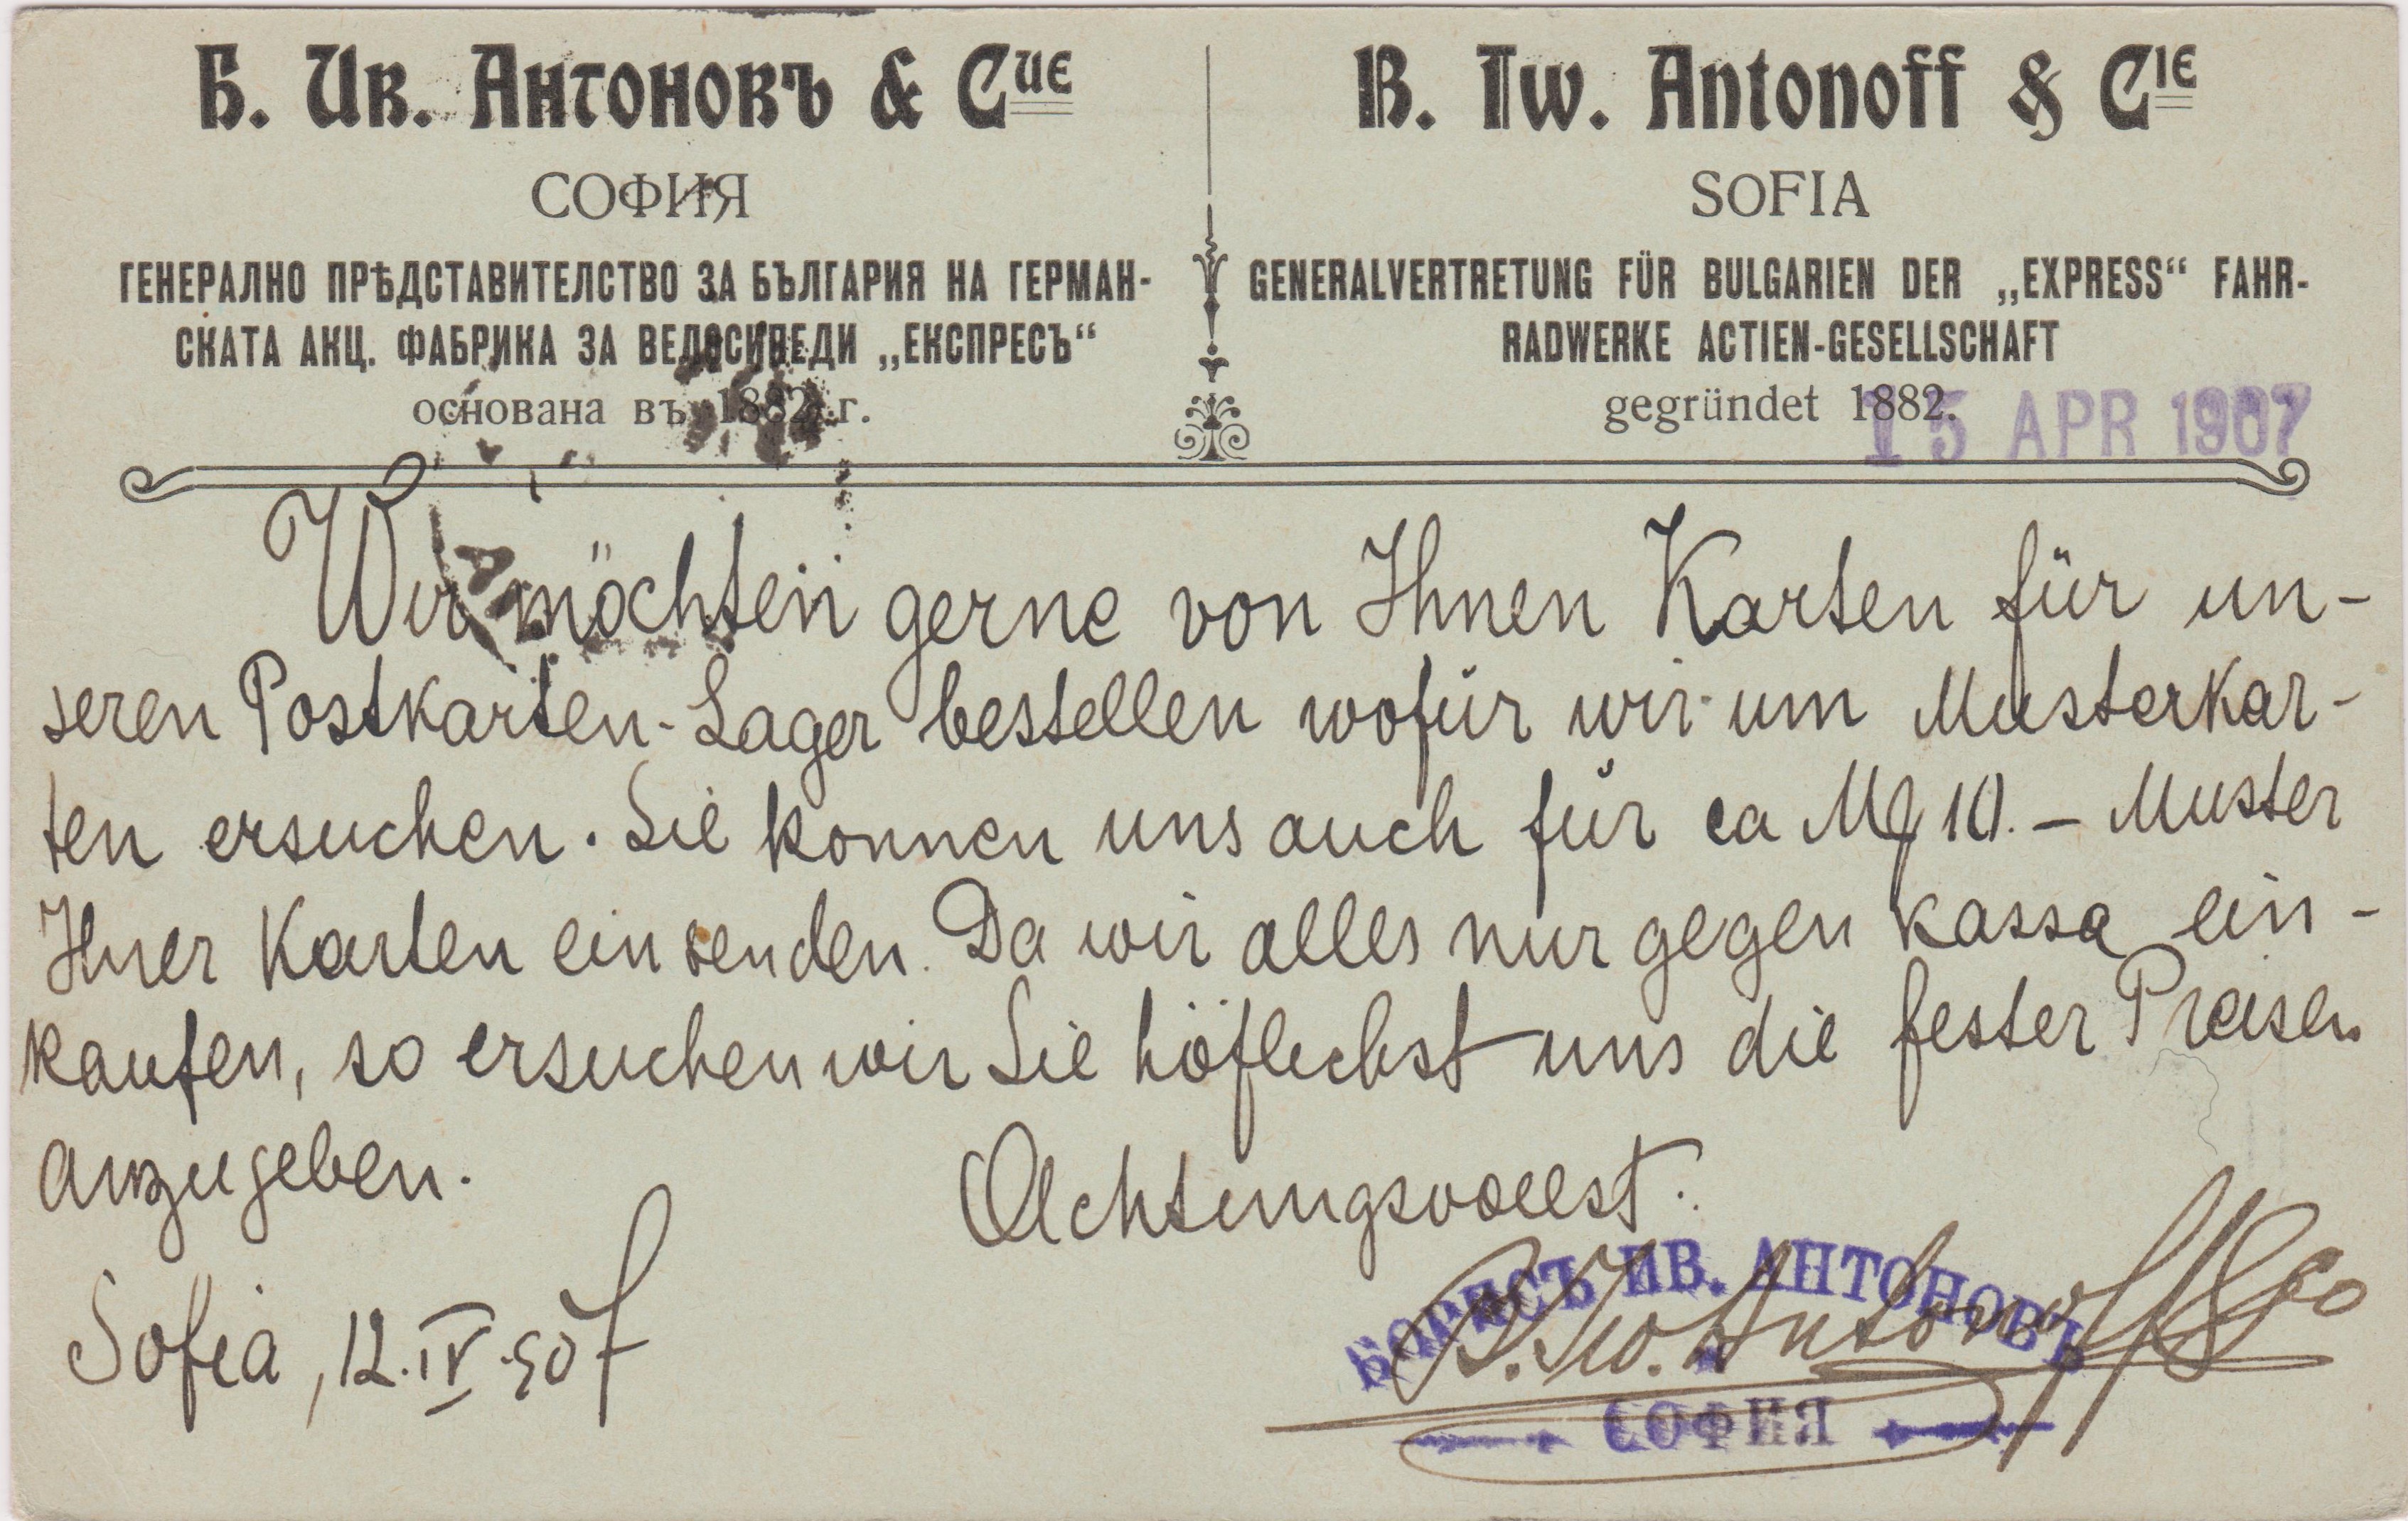 Б. Ив. Антоновъ & Cие
СОФИЯ
ГЕНЕРАЛНО ПРѢДСТАВИТЕЛСТВО ЗА БЪЛГАРИЯ НА ГЕРМАН-
СКАТА АКЦ. ФАБРИКА ЗА ВЕЛОСИПЕДИ „ЕКСПРЕСЪ“
основана въ 1882 г.
B. Iw. Antonoff & Cie
SOFIA
GENERALVERTRETUNG FÜR BULGARIEN DER „EXPRESS“ FAHR-
RADWERKE ACTIEN-GESELLSCHAFT
gegründet 1882.
15 APR 1907
Wir möchten gerne von Ihnen Karten für un-
seren Postkarten-Lager bestellen wofür wir um Musterkar-
ten ersuchen. Sie konnen uns auch für ca Mk 10.– Muster
Ihrer Karten einsenden. Da wir alles nur gegen kassa ein-
kaufen, so ersuchen wir Sie höflichst uns die fester Preisen
anzugeben.
Achtungsvollst.
Sofia, 12.IV.907
БОРИСЪ ИВ. АНТОНОВЪ
B. Iw. Antonoff & Co
СОФИЯ